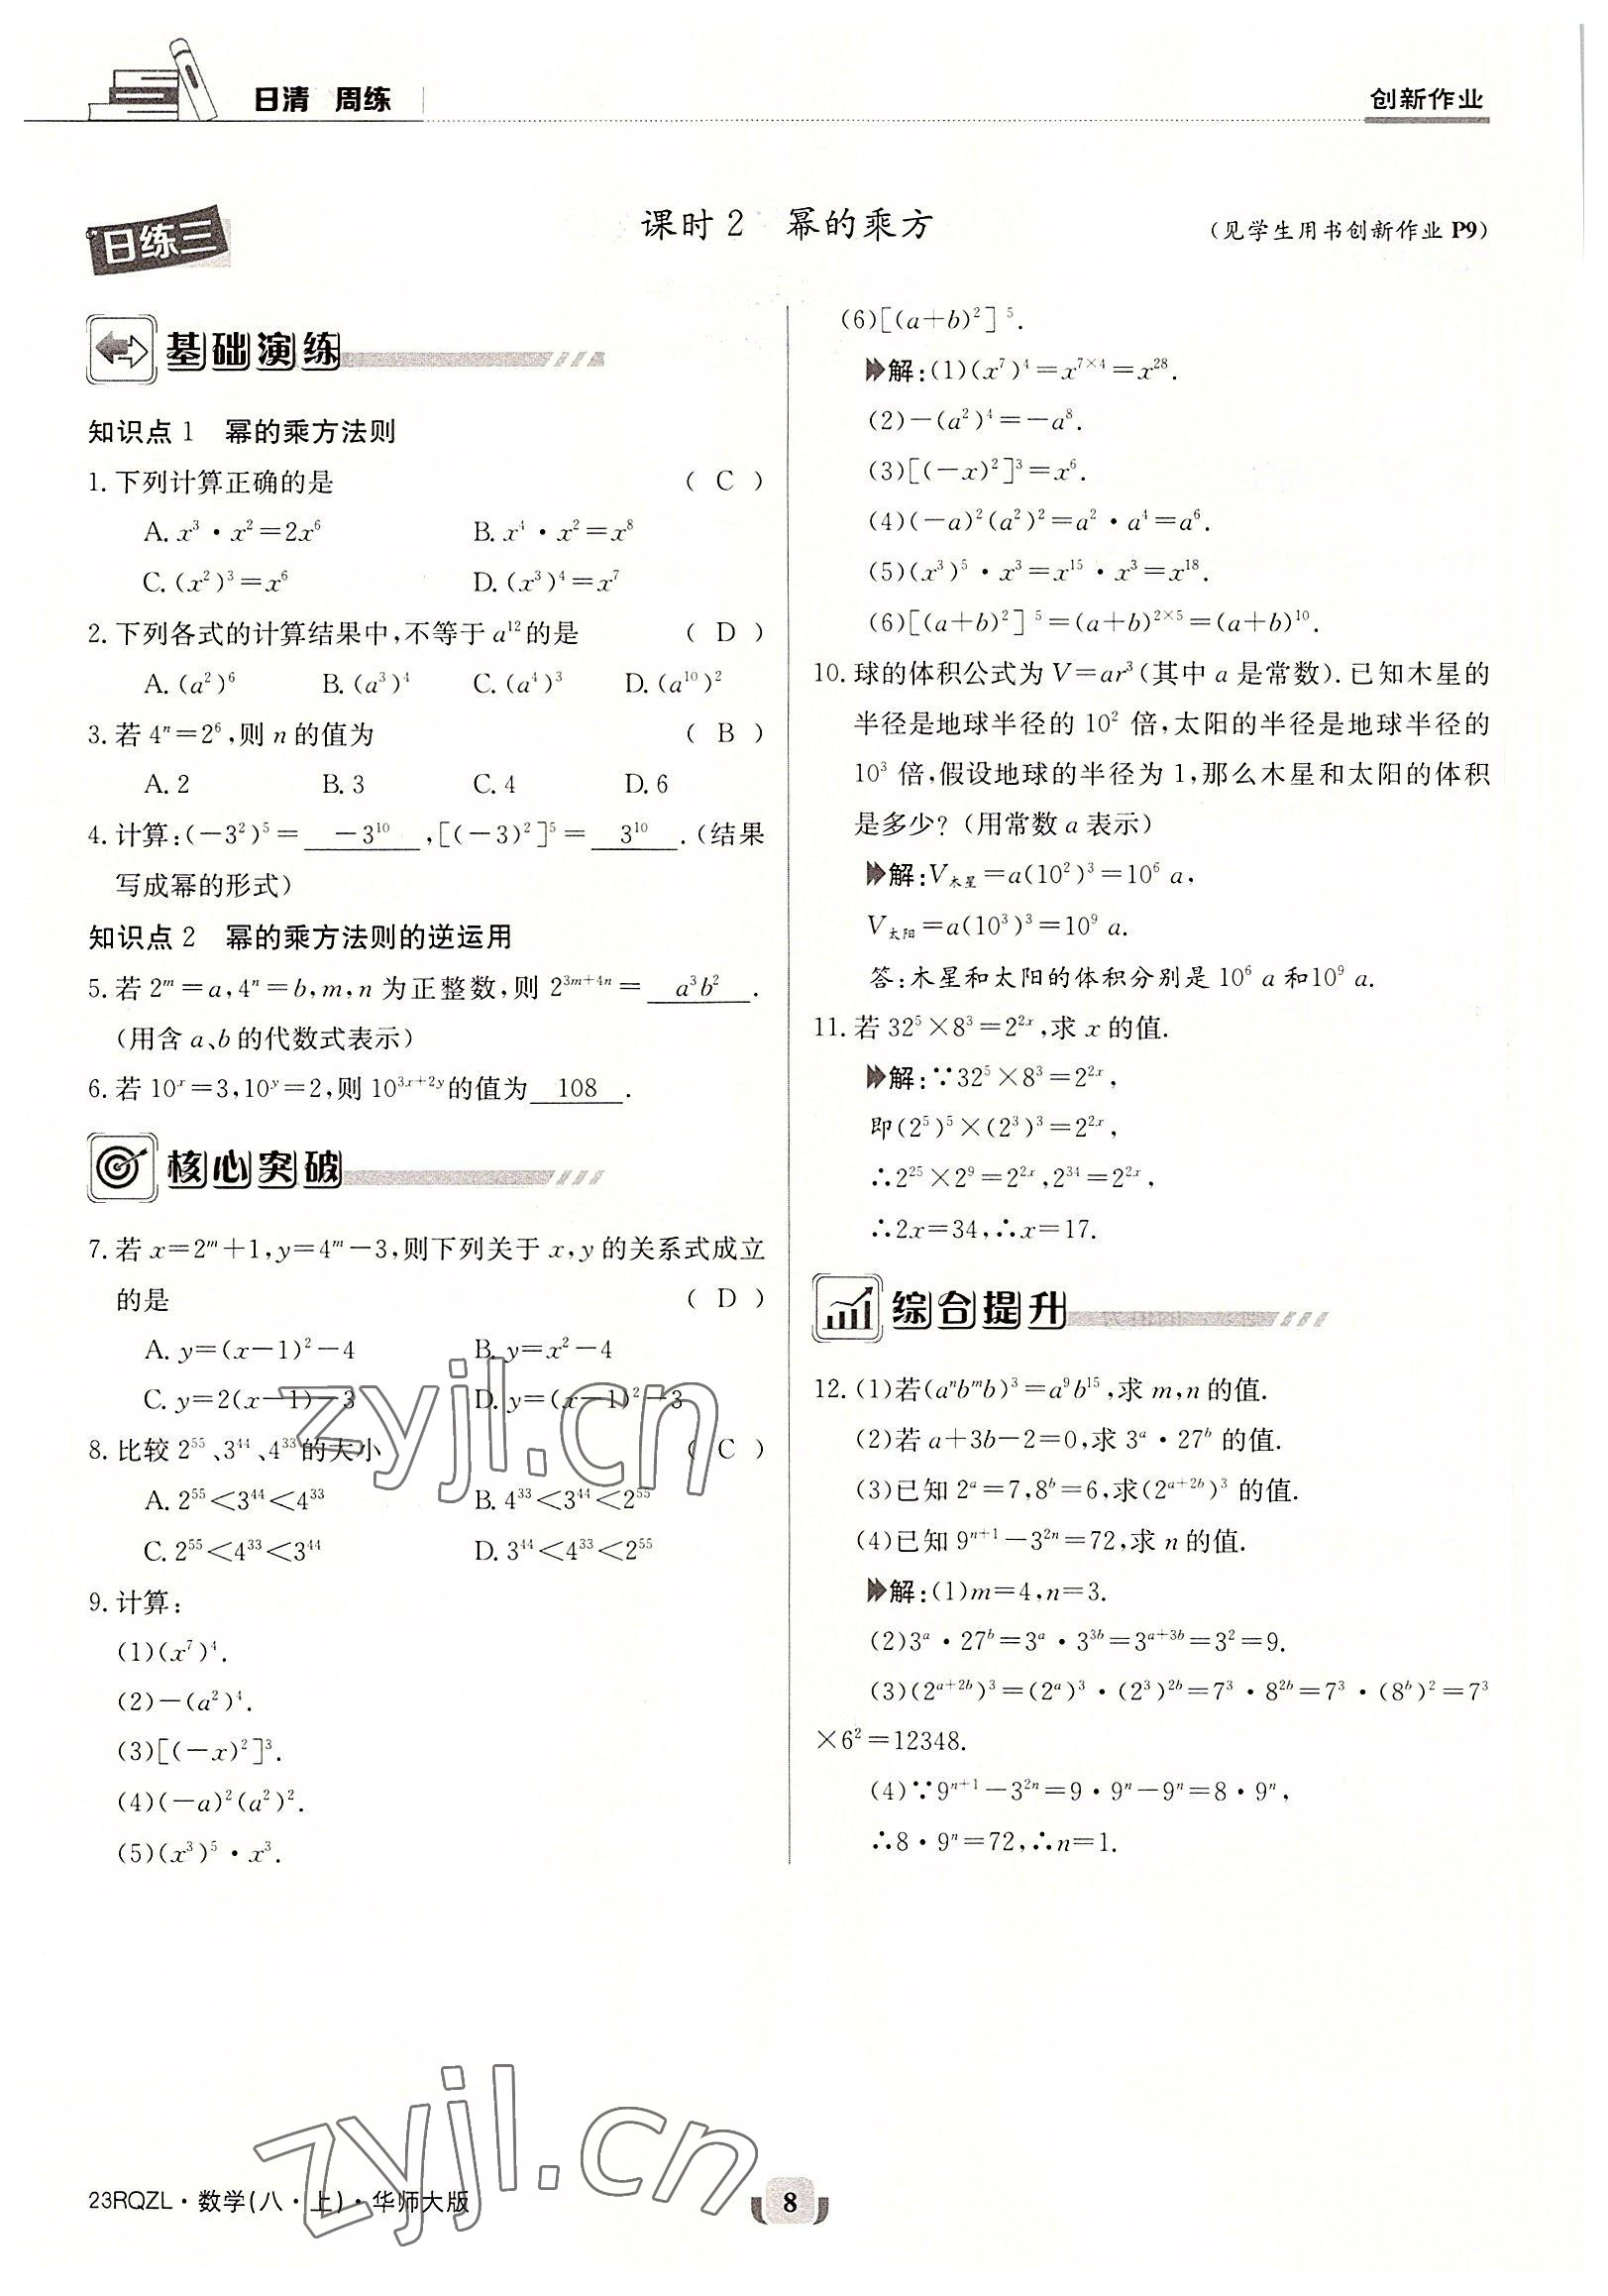 日清 周练
创新作业
日练三
课时2 幂的乘方
(见学生用书创新作业 P9)
基础演练
知识点1 幂的乘方法则
1. 下列计算正确的是 ( C )
A. x³·x²=2x⁶ B. x⁴·x²=x⁸
C. (x²)³=x⁶ D. (x³)⁴=x⁷
2. 下列各式的计算结果中,不等于a¹²的是 ( D )
A. (a²)⁶ B. (a³)⁴ C. (a⁴)³ D. (a¹⁰)²
3. 若4ⁿ=2⁶,则n的值为 ( B )
A. 2 B. 3 C. 4 D. 6
4. 计算:(-3²)⁵= -3¹⁰ ,[(-3)²]⁵= 3¹⁰ .(结果
写成幂的形式)
知识点2 幂的乘方法则的逆运用
5. 若2ᵐ=a,4ⁿ=b,m,n为正整数,则2³ᵐ⁺⁴ⁿ= a³b² .
(用含a、b的代数式表示)
6. 若10ˣ=3,10ʸ=2,则10³ˣ⁺²ʸ的值为 108 .
核心突破
7. 若x=2ᵐ+1,y=4ᵐ-3,则下列关于x,y的关系式成立
的是 ( D )
A. y=(x-1)²-4 B. y=x²-4
C. y=2(x-1)-3 D. y=(x-1)²-3
8. 比较2⁵⁵、3⁴⁴、4³³的大小 ( C )
A. 2⁵⁵<3⁴⁴<4³³ B. 4³³<3⁴⁴<2⁵⁵
C. 2⁵⁵<4³³<3⁴⁴ D. 3⁴⁴<4³³<2⁵⁵
9. 计算:
(1)(x⁷)⁴.
(2)-(a²)⁴.
(3)[(-x)²]³.
(4)(-a)²(a²)².
(5)(x³)⁵·x³.
(6)[(a+b)²]⁵.
解:(1)(x⁷)⁴=x⁷ˣ⁴=x²⁸.
(2)-(a²)⁴=-a⁸.
(3)[(-x)²]³=x⁶.
(4)(-a)²(a²)²=a²·a⁴=a⁶.
(5)(x³)⁵·x³=x¹⁵·x³=x¹⁸.
(6)[(a+b)²]⁵=(a+b)²ˣ⁵=(a+b)¹⁰.
10. 球的体积公式为V=ar³(其中a是常数).已知木星的
半径是地球半径的10²倍,太阳的半径是地球半径的
10³倍,假设地球的半径为1,那么木星和太阳的体积
是多少?(用常数a表示)
解:V木星=a(10²)³=10⁶a,
V太阳=a(10³)³=10⁹a.
答:木星和太阳的体积分别是10⁶a和10⁹a.
11. 若32⁵×8³=2²ˣ,求x的值.
解:∵32⁵×8³=2²ˣ,
即(2⁵)⁵×(2³)³=2²ˣ,
∴2²⁵×2⁹=2²ˣ,2³⁴=2²ˣ,
∴2x=34,∴x=17.
综合提升
12. (1)若(aⁿbᵐb)³=a⁹b¹⁵,求m,n的值.
(2)若a+3b-2=0,求3ᵃ·27ᵇ的值.
(3)已知2ᵃ=7,8ᵇ=6,求(2ᵃ⁺²ᵇ)³的值.
(4)已知9ⁿ⁺¹-3²ⁿ=72,求n的值.
解:(1)m=4,n=3.
(2)3ᵃ·27ᵇ=3ᵃ·3³ᵇ=3ᵃ⁺³ᵇ=3²=9.
(3)(2ᵃ⁺²ᵇ)³=(2ᵃ)³·(2³)²ᵇ=7³·8²ᵇ=7³·(8ᵇ)²=7³
×6²=12348.
(4)∵9ⁿ⁺¹-3²ⁿ=9·9ⁿ-9ⁿ=8·9ⁿ,
∴8·9ⁿ=72,∴n=1.
zyjl.cn
zyjl.cn
23RQZL·数学(八·上)·华师大版
8